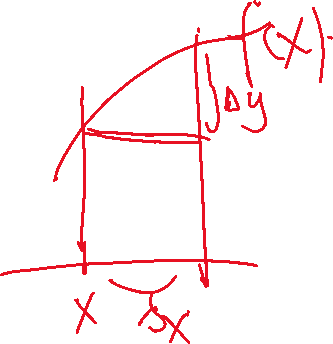 f(x)
Δy
x
Δx